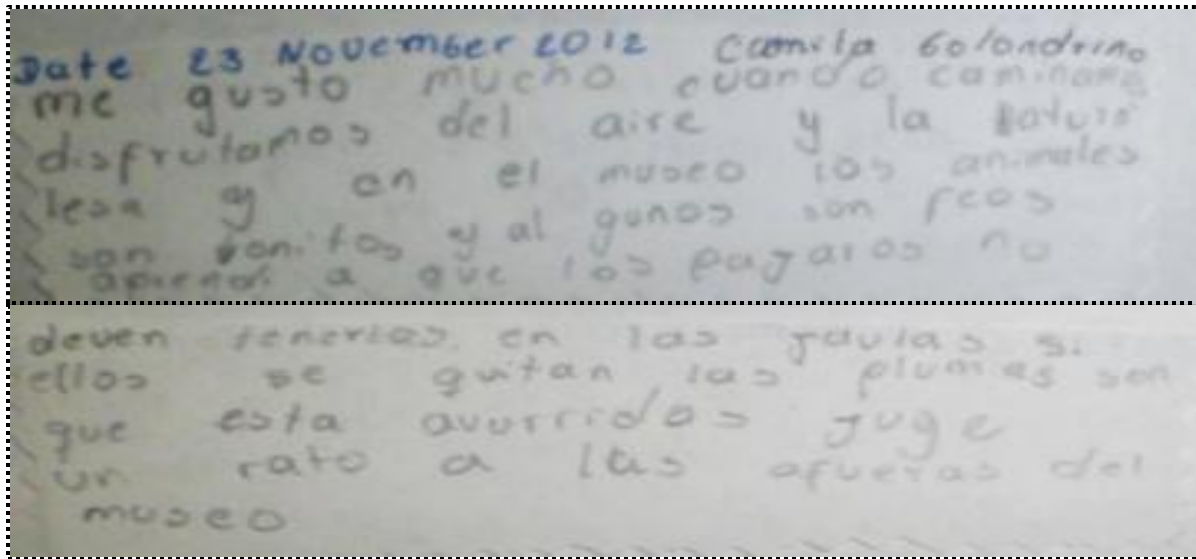 Date 23 November 2012 Camila Golondrino
me gusto mucho cuando caminamos
disfrutamos del aire y la naturo
lesa y en el museo los animales
son vonitos y al gunos son feos
aprendi a que los pagaros no
deven tenerlos en las jaulas si
ellos se quitan las plumas son
que esta avurridos juge
un rato a las afueras del
museo